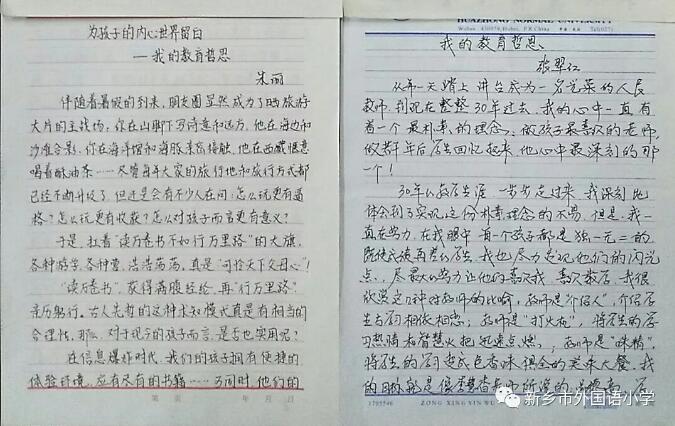 为孩子的内心世界留白
——我的教育哲思
朱丽
伴随着暑假的到来，朋友圈显然成为了晒旅游
大片的主战场：你在山脚下写诗意和远方，他在海边和
沙滩合影，你在海洋馆和海豚亲密接触，他在西藏惬意
喝着酥油茶……尽管每年大家的旅行地和旅行方式都
已经不断升级了，但还是会有不少人在问：怎么玩更有逼
格？怎么玩更有收获？怎么对孩子而言更有意义？
于是，扛着“读万卷书不如行万里路”的大旗，
各种游学、各种营，浩浩荡荡，真是“可怜天下父母心”！
“读万卷书”，获得满腹经纶，再“行万里路”
亲历躬行。古人先哲的这种求知模式真是有相当的
合理性，那么，对于现今的孩子而言，是否也实用呢？
在信息爆炸时代，我们的孩子拥有便捷的
体验环境，应有尽有的书籍……与同时，他们的
第 页 年 月 日
HUAZHONG NORMAL UNIVERSITY
Wuhan 430079, Hubei, P.R.China Tel:(027)
我的教育哲思
张翠红
从第一天踏上讲台成为一名光荣的人民
教师，到现在整整30年过去，我的心中一直有
着一个最朴素的理念，做孩子最喜欢的老师，
做若干年后学生回忆起来，他心中最深刻的那
一个！
30年的教学生涯一步步走过来，我深刻地
体会到了实现这份朴素理念的不易，但是，我一
直在努力，在我眼中每一个孩子都是独一无二的
既使式使再差的学生，我也尽力去发现他们的闪光
点，尽最大的努力让他们喜欢我，喜欢数学，我很
欣赏这几种对教师的比喻，教师是“介绍人”，介绍学
生与学习相依相恋；教师是“打火机”，将学生的学
习热情和智慧火把迅速点燃；教师是“味精”，
将学生的学习变成色香味俱全的美味大餐。我
的目标就是
1705546
ZONG XING XIN WU
新乡市外国语小学